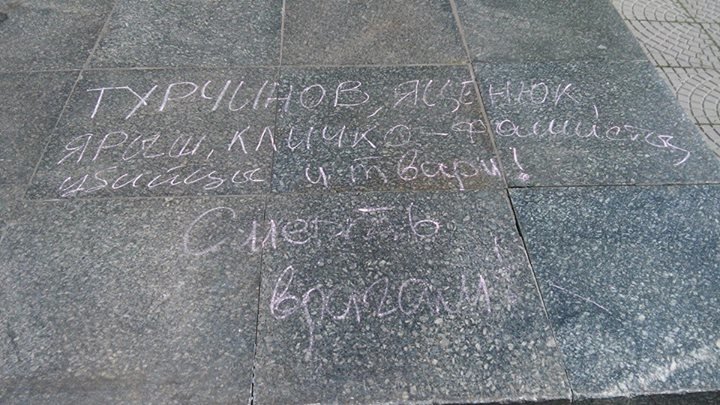 ТУРЧИНОВ, ЯЦЕНЮК,
ЯРЫШ, КЛИЧКО – фашисты,
убийцы и твари!
Смерть
врагам!